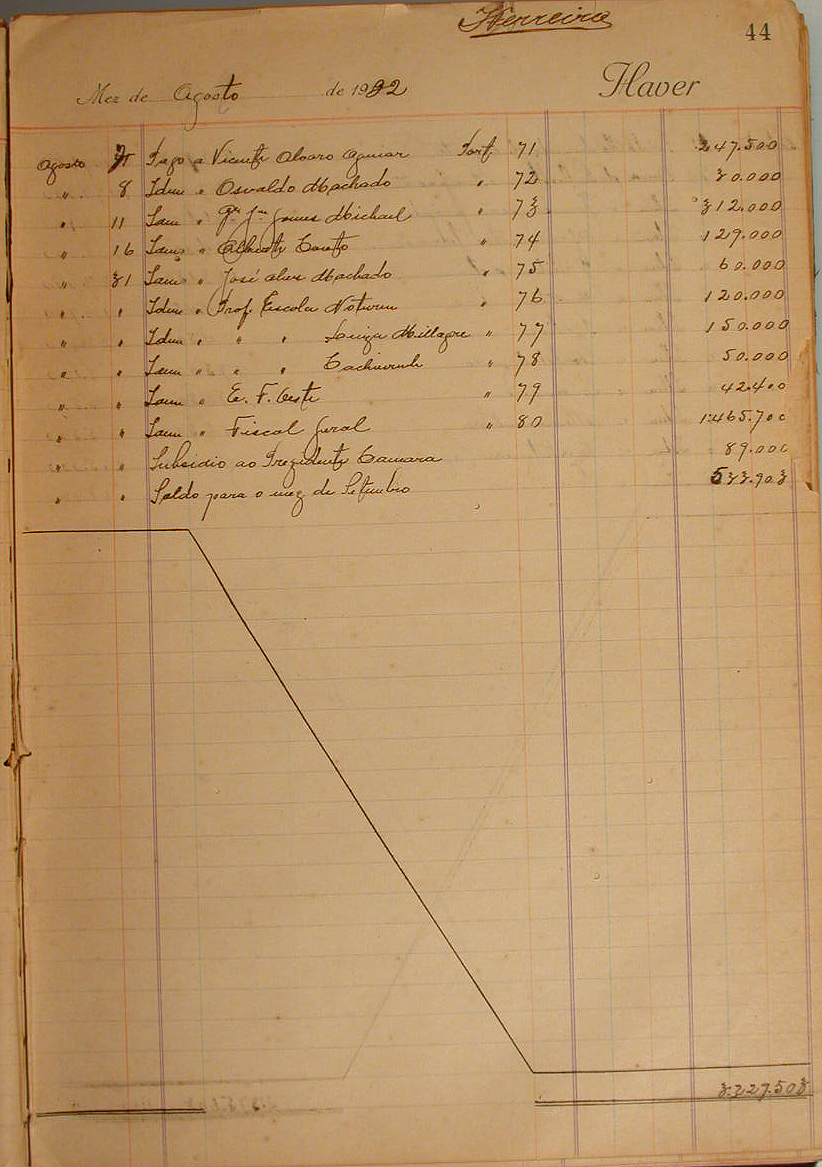 Ferreira
44
Mez de Agosto de 1922 Haver
Agosto Pago a Vicente Alvaro Aguiar Port. 71 247.500
" 8 Idem " Osvaldo Machado " 72 30.000
" 11 Idem " Gomes Michael " 73 312.000
" 16 Idem " " 74 129.000
" 31 Idem " José Alves Machado " 75 60.000
" " Idem " Prof. Escola Noturna " 76 120.000
" " Idem " " " Millagre " 77 150.000
" " Idem " " " " 78 50.000
" " Idem " E. F. Oeste " 79 42.400
" " Idem " Fiscal Geral " 80 1:465.700
" " Subsidio ao Prezidente Camara 89.000
" " Saldo para o mez de Setembro 533.903
3.227.503